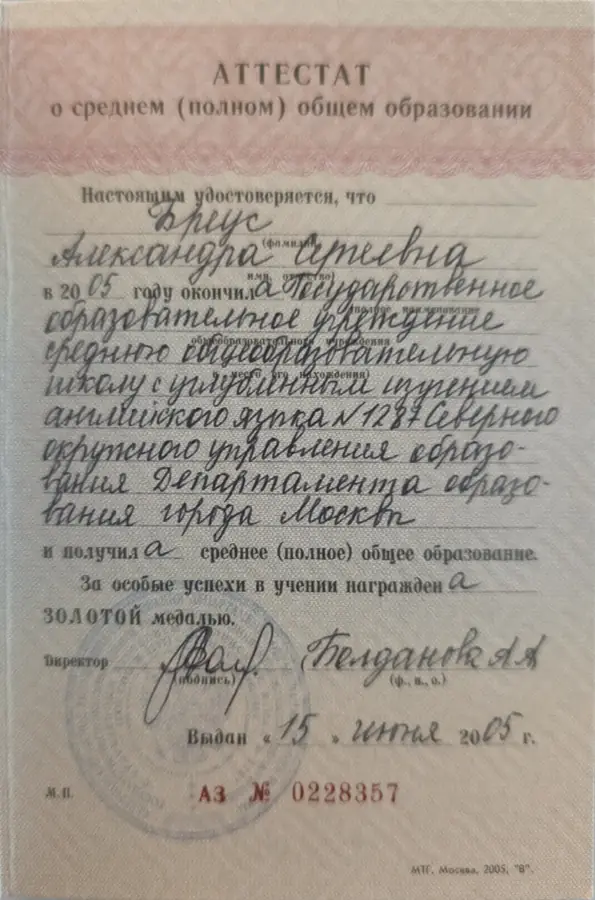 АТТЕСТАТ
о среднем (полном) общем образовании
Настоящим удостоверяется, что
Бреус
(фамилия)
Александра Сергеевна
имя, отчество)
в 2005 году окончила Государственное
(полное наименование
образовательное учреждение
общеобразовательного учреждения
среднюю общеобразовательную
и место его нахождения)
школу с углубленным изучением
английского языка N 1287 Северного
окружного управления образо-
вания Департамента образо-
вания города Москвы
и получила среднее (полное) общее образование.
За особые успехи в учении награждена
ЗОЛОТОЙ медалью.
Директор Белданова А А
(подпись) (ф., и., о.)
Выдан « 15 » июня 2005 г.
М.П. АЗ № 0228357
МТГ, Москва, 2005, "В".